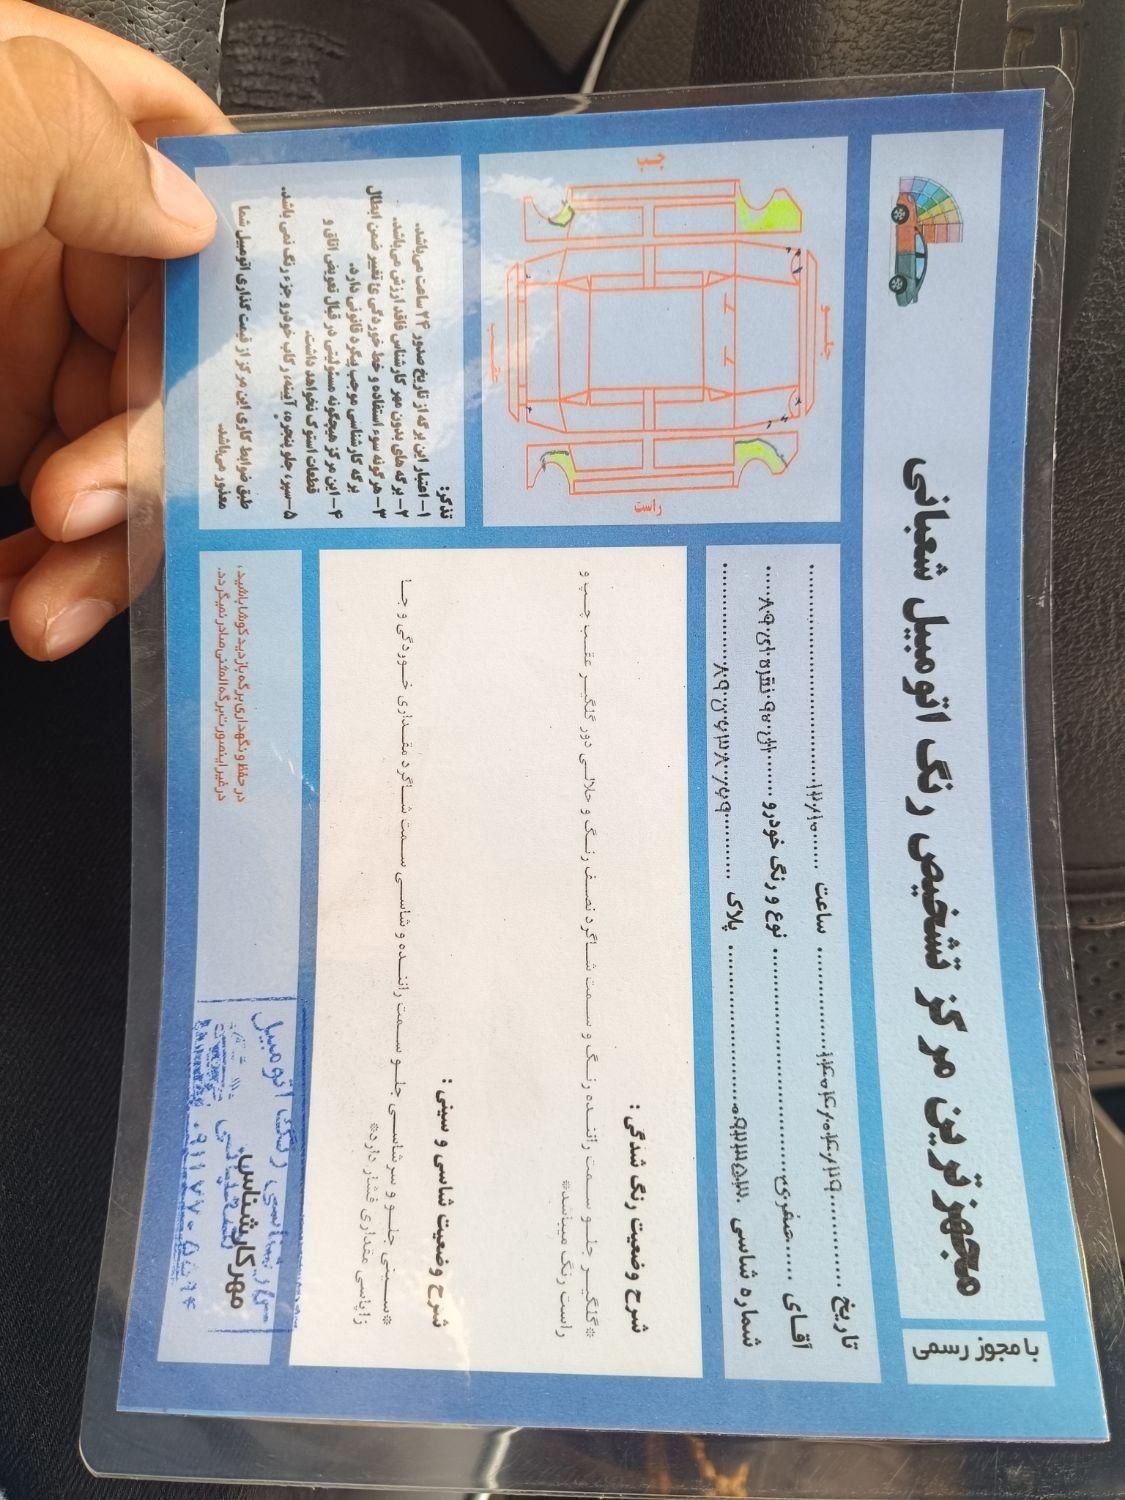 با مجوز رسمی
مجهزترین مرکز تشخیص رنگ اتومبیل شعبانی
تاریخ ساعت
آقای صفری نوع و رنگ خودرو
شماره شاسی پلاک
جلو
عقب
راست
شرح وضعیت رنگ شدگی :
*گلگیر جلو سمت راننده رنگ و سمت شاگرد نصف رنگ و حلالی دور گلگیر عقب چپ و
راست رنگ میباشد*
شرح وضعیت شاسی و سینی :
*سینی جلو و سرشاسی جلو سمت راننده و شاسی سمت شاگرد مقداری خوردگی و جا
زاپاسی مقداری فشار دارد*
تذکر:
۱- اعتبار این برگه از تاریخ صدور ۲۴ ساعت می‌باشد.
۲- برگه های بدون مهر کارشناس فاقد ارزش می‌باشد.
۳- هرگونه سوء استفاده و خط خوردگی یا تغییر ضمن ابطال
برگه کارشناسی موجب پیگرد قانونی دارد.
۴- این مرکز هیچگونه مسئولیتی در قبال تعویض اتاق و
قطعات استوک نخواهد داشت.
۵- سپر، جلو پنجره، آیینه، رکاب خودرو جزء رنگ نمی باشد.
طبق ضوابط کاری این مرکز از قیمت گذاری اتومبیل شما
معذور می‌باشد.
در حفظ و نگهداری برگه بازدید کوشا باشید،
در غیر اینصورت برگه المثنی صادر نمیگردد.
مهر کارشناس